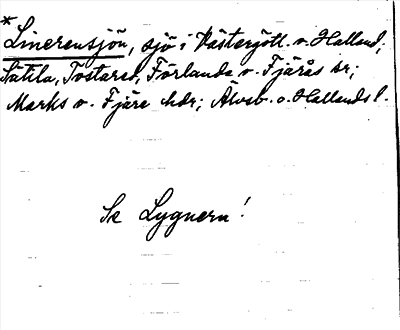 *
Linerensjön, sjö i Västergötl. o. Halland;
Sätila, Tostared, Förlanda o. Fjärås sr;
Marks o. Fjäre hdr; Älvsb. o. Hallands l.
Se Lygnern!